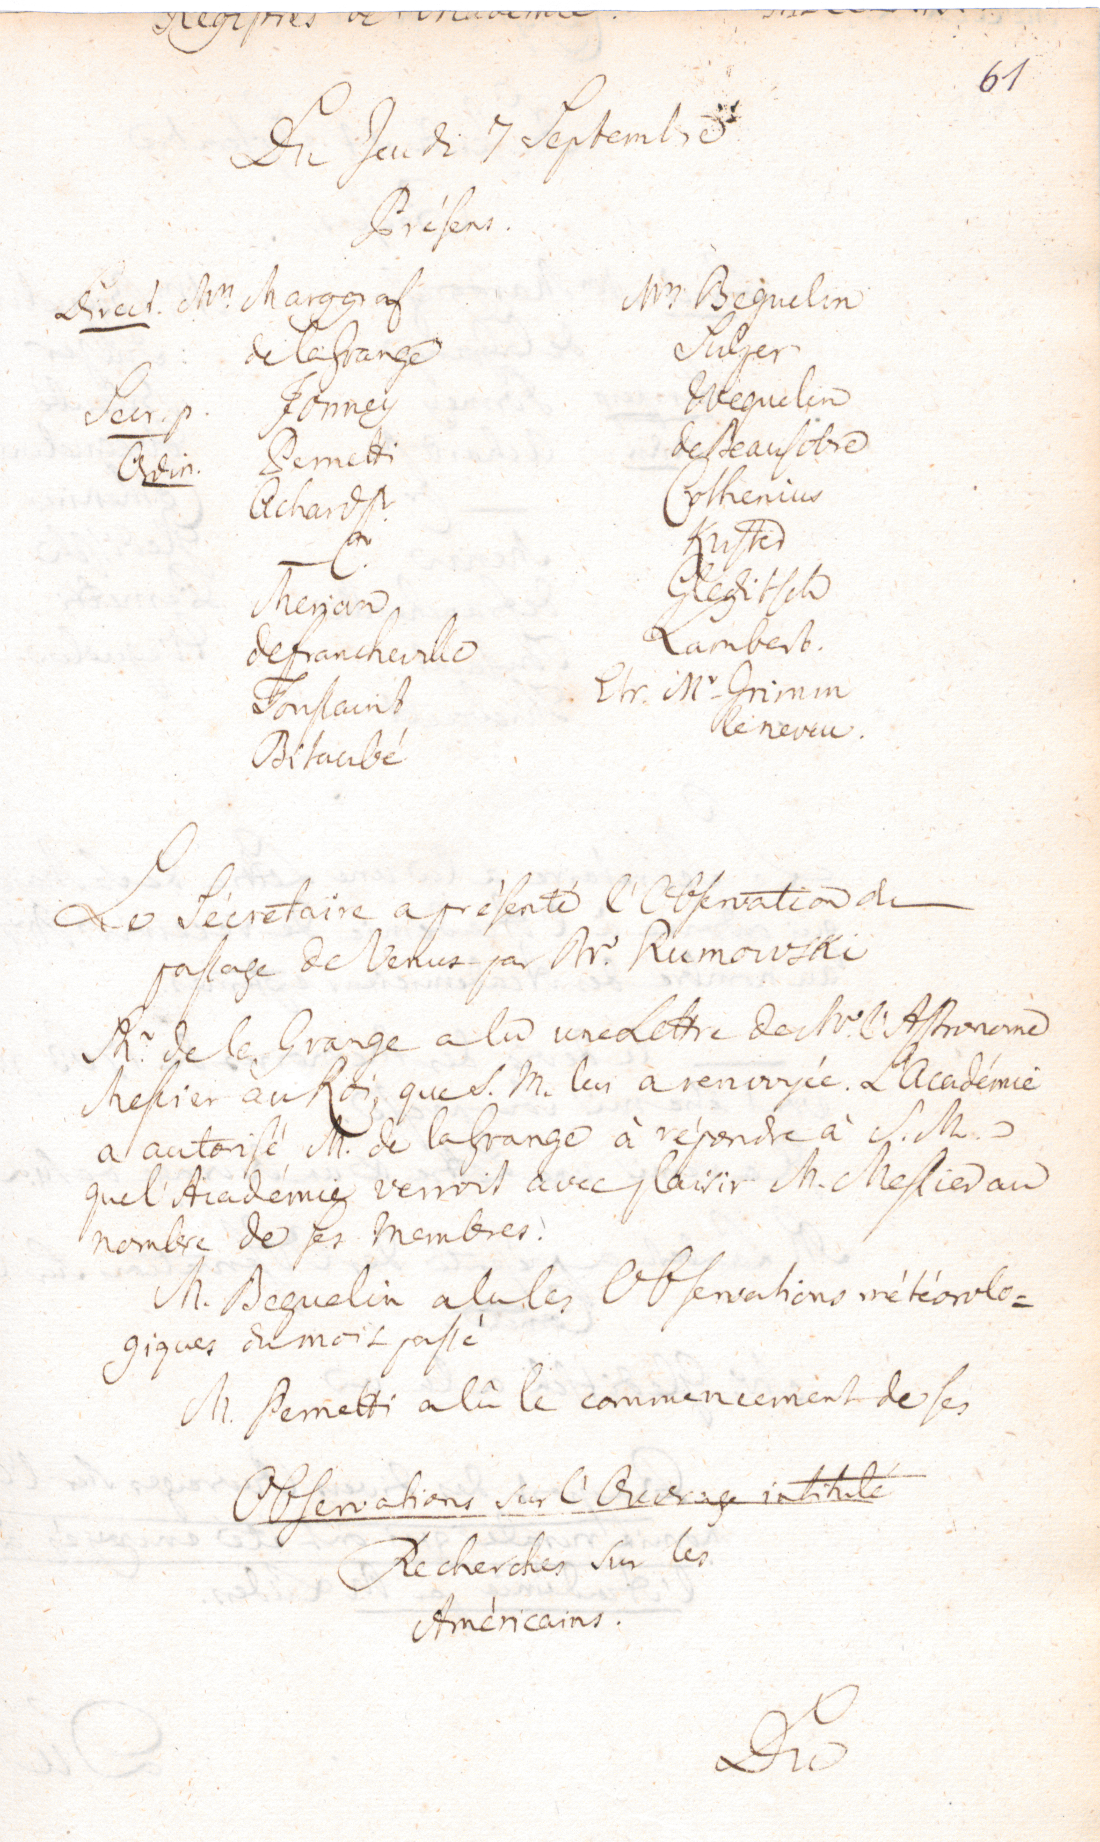 Registres de l'Académie.
61
Du Jeudi 7 Septembre
Présens.
Direct. Mrs. Marggraf
de la Grange
Secr. p. Formey
Ordin. Pernetti
Achard Fr.
Cr.
Merian
de Francheville
Toussaint
Bitaubé
Mrs Beguelin
Sulzer
Weguelin
de Beausobre
Cothenius
Kuster
Gleditsch
Lambert.
Etr. Mr. Grimm
le neveu.
Le Sécretaire a présenté l'Observation du
passage de Venus par Mr. Rumowski
Mr. de la Grange a lu une Lettre de Mr. l'Astronome
Messier au Roi, que S. M. lui a renvoyée. L'Académie
a autorisé M. de la Grange à répondre à S. M.
que l'Académie verroit avec plaisir M. Messier au
nombre de ses Membres.
M. Beguelin a lu les Observations météorolo=
giques du mois passé
M. Pernetti a lû le commencement de ses
Observations sur l'Ouvrage intitulé
Recherches sur les
Américains.
Du